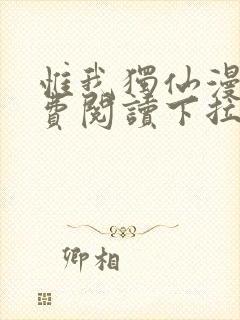 惟我獨仙漫
費閱讀下拉
卿相